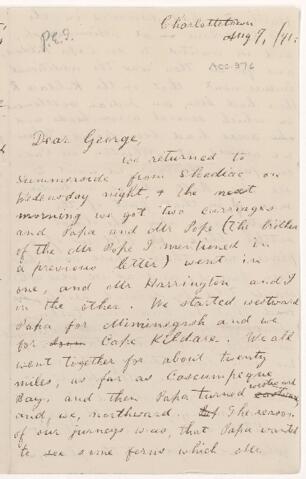 P.E.I.
Charlottetown
Aug 9, /41.
ACC-976
Dear George,
We returned to
Summerside from Shediac on
Wednesday night, & the next
morning we got two carriages
and Papa and Mr Pope (the brother
of the Mr Pope I mentioned in
a previous letter) went in
one, and Mr Harrington and I
in the other. We started westward
Papa for Miminegash and we
for Cape Kildare. We all
went together for about twenty
miles, as far as Cascumpeque
Bay, and then Papa turned westward
and, we, northward. The reason
of our journeys was, that Papa wanted
to see some ferns which Mr.